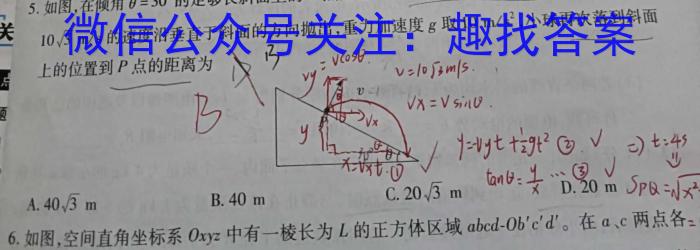 5.如图,在倾角θ=30°的足够长斜面上
微信公众号关注：趣找答案
10√3 的速度沿垂直于斜面的方向抛出,重力加速度 g 取 10 小球再次落到斜面
上的位置到 P 点的距离为
B
vy=vcosθ
v=10√3m/s.
vx=vsinθ
vx
y
x=vxt ①
y=vyt+½gt² ② √ ⇒) t=4s
tanθ=y/x … ③ √
SPQ=√x²
A. 40√3 m B. 40 m C. 20√3 m D. 20 m
6.如图,空间直角坐标系 Oxyz 中有一棱长为 L 的正方体区域 abcd-Ob'c'd'。在 a、c 两点各